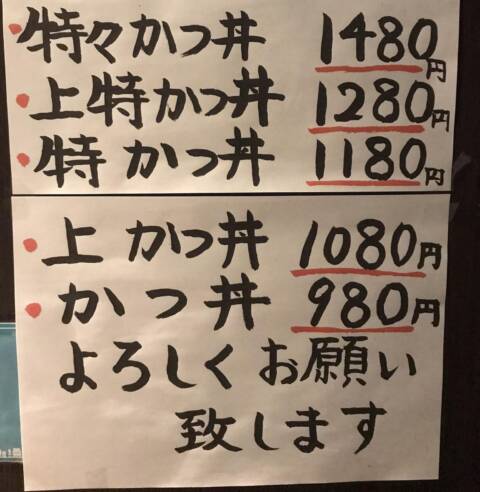 ・特々かつ丼 1480円
・上特かつ丼 1280円
・特かつ丼 1180円
・上かつ丼 1080円
・かつ丼 980円
よろしくお願い
致します